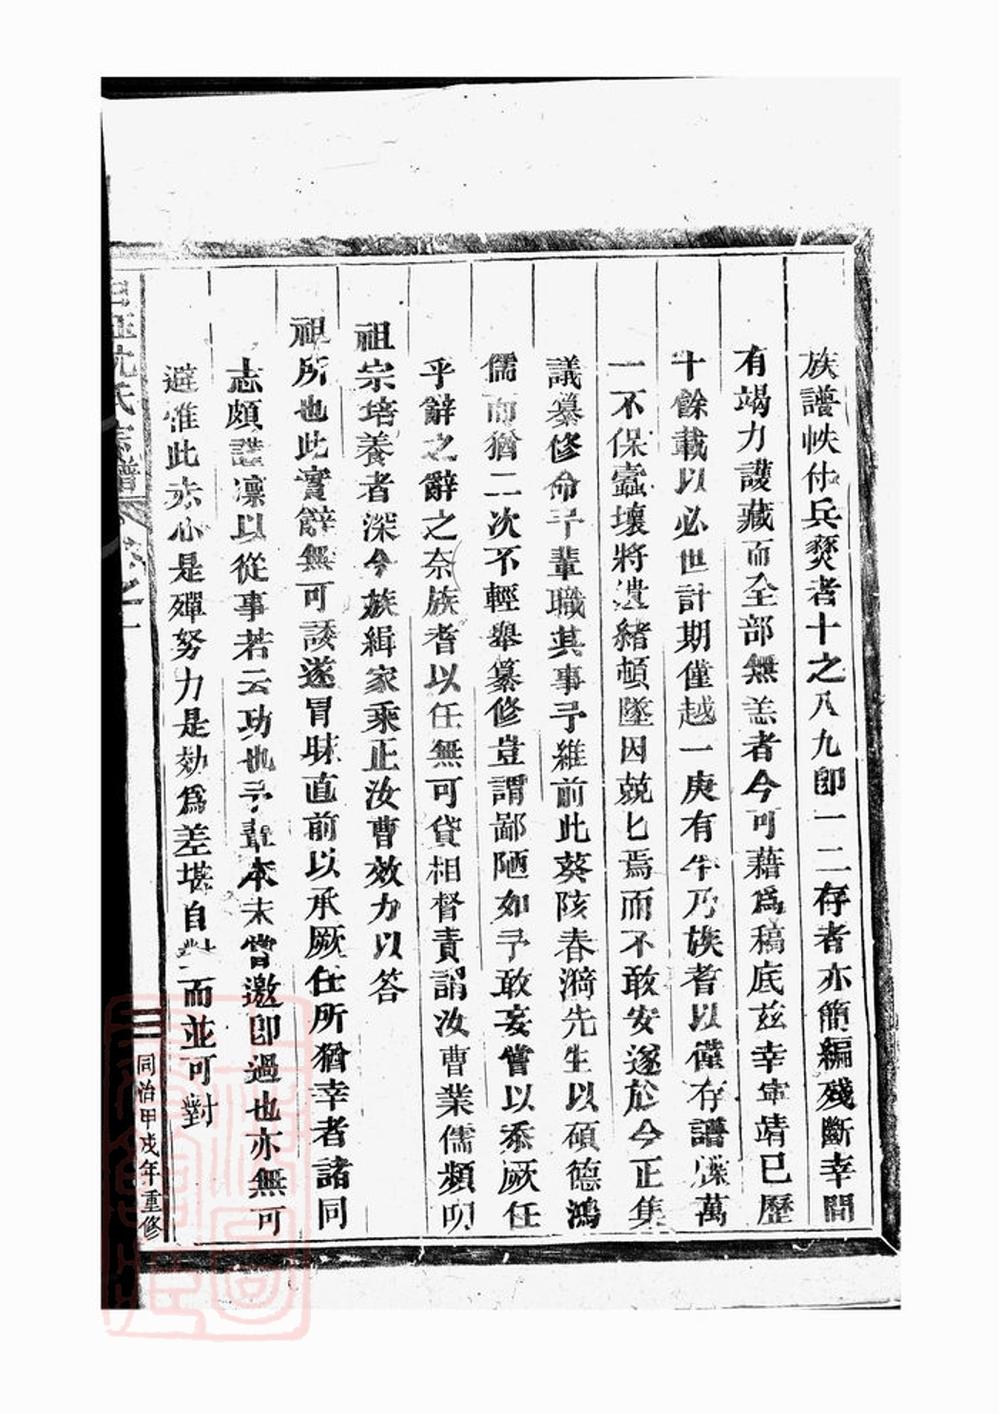 族譜帙付兵燹者十之八九卽一二存者亦簡編殘斷幸間
有竭力護藏而全部無恙者今可藉爲稿底茲幸寧靖已歷
十餘載以必世計期僅越一庚有乃族耆以僅存譜牒萬
一不保蠹壞將遺緒頓墜因兢匕焉而不敢安遂於今正集
議纂修命予輩職其事予維前此葵陔春漪先生以碩德鴻
儒而猶二次不輕舉纂修豈謂鄙陋如予敢妄嘗以忝厥任
乎辭之辭之奈族耆以任無可貸相督責謂汝曹業儒頻叨
祖宗培養者深今族緝家乘正汝曹效力以答
祖所也此實辭無可諉遂冒昧直前以承厥任所猶幸者諸同
志頗諜凛以從事若云功也予輩本未嘗邀卽過也亦無可
避惟此赤心是殫努力是効爲差堪自對而並可對
沈氏宗譜 卷之一
三 同治甲戌年重修